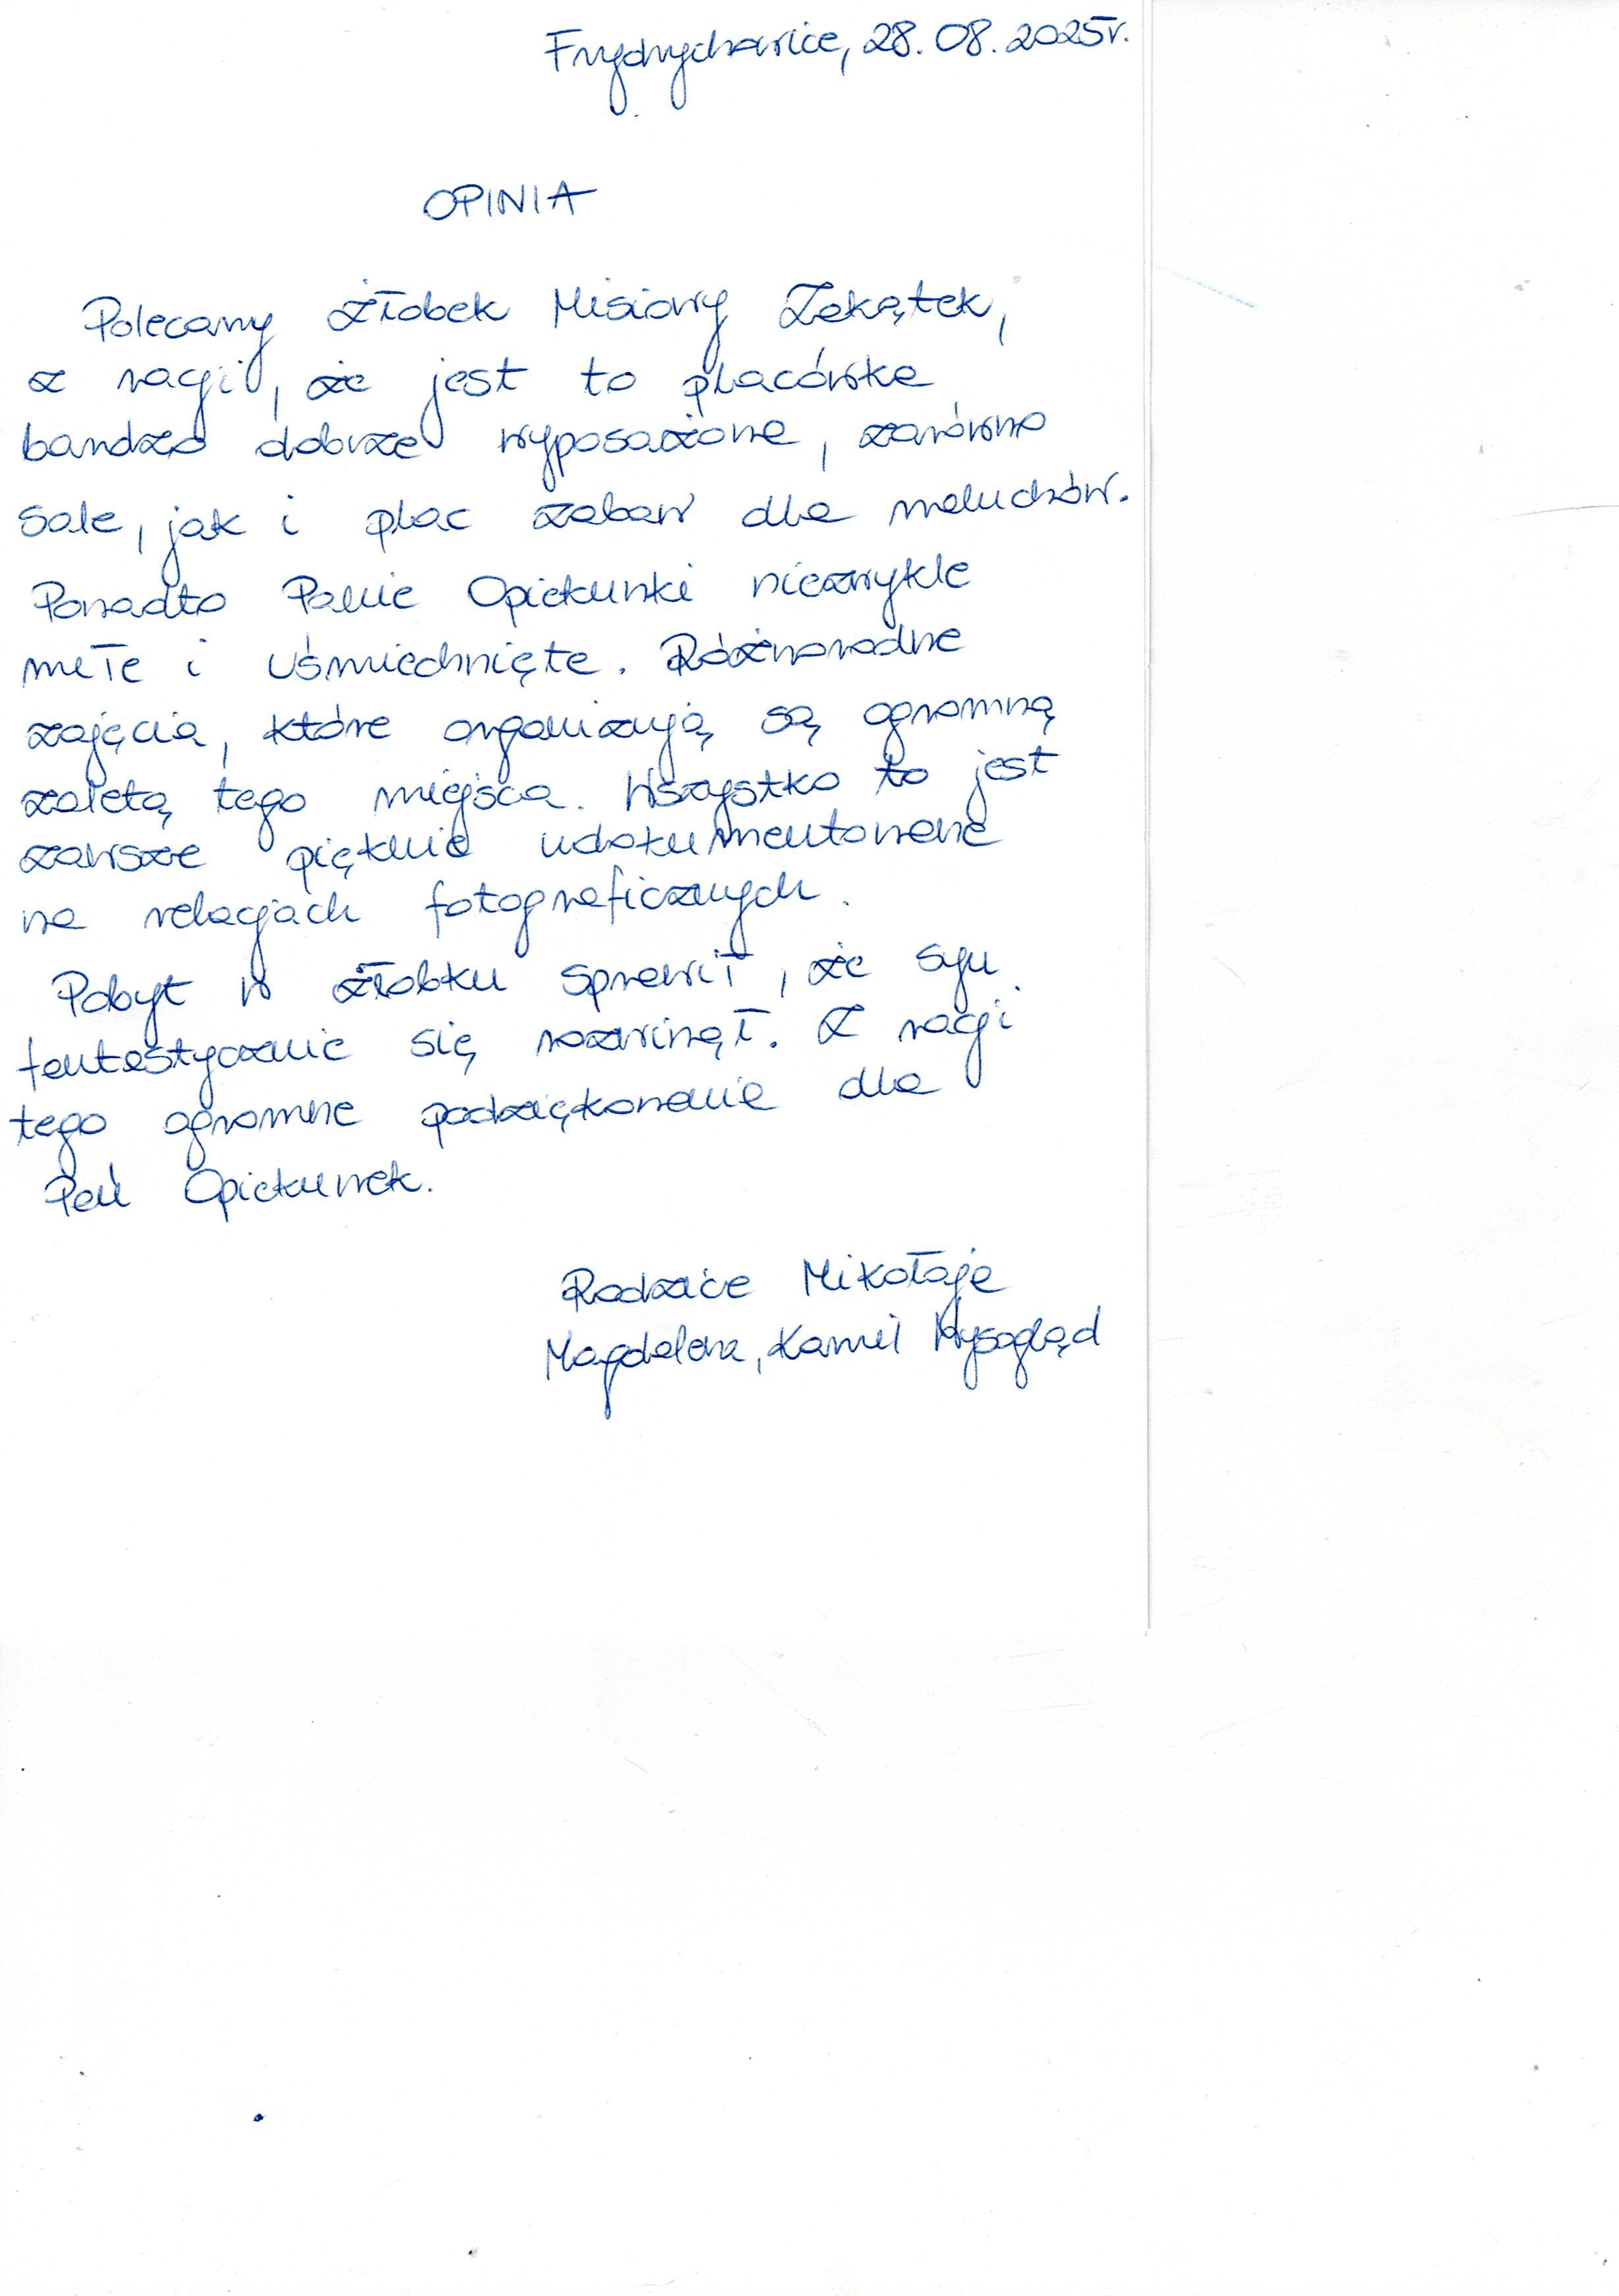 Frydrychowice, 28.08.2025r.
OPINIA
Polecamy żłobek Misiowy Zakątek,
z racji, że jest to placówka
bardzo dobrze wyposażona, zarówno
sale, jak i plac zabaw dla maluchów.
Ponadto Panie Opiekunki niezwykle
miłe i uśmiechnięte. Różnorodne
zajęcia, które organizują są ogromną
zaletą tego miejsca. Wszystko to jest
zawsze pięknie udokumentowane
na relacjach fotograficznych.
Pobyt w żłobku sprawił, że syn
fantastycznie się rozwinął. Z racji
tego ogromne podziękowanie dla
Pań Opiekunek.
Rodzice Mikołaja
Magdalena, Kamil Wysogląd